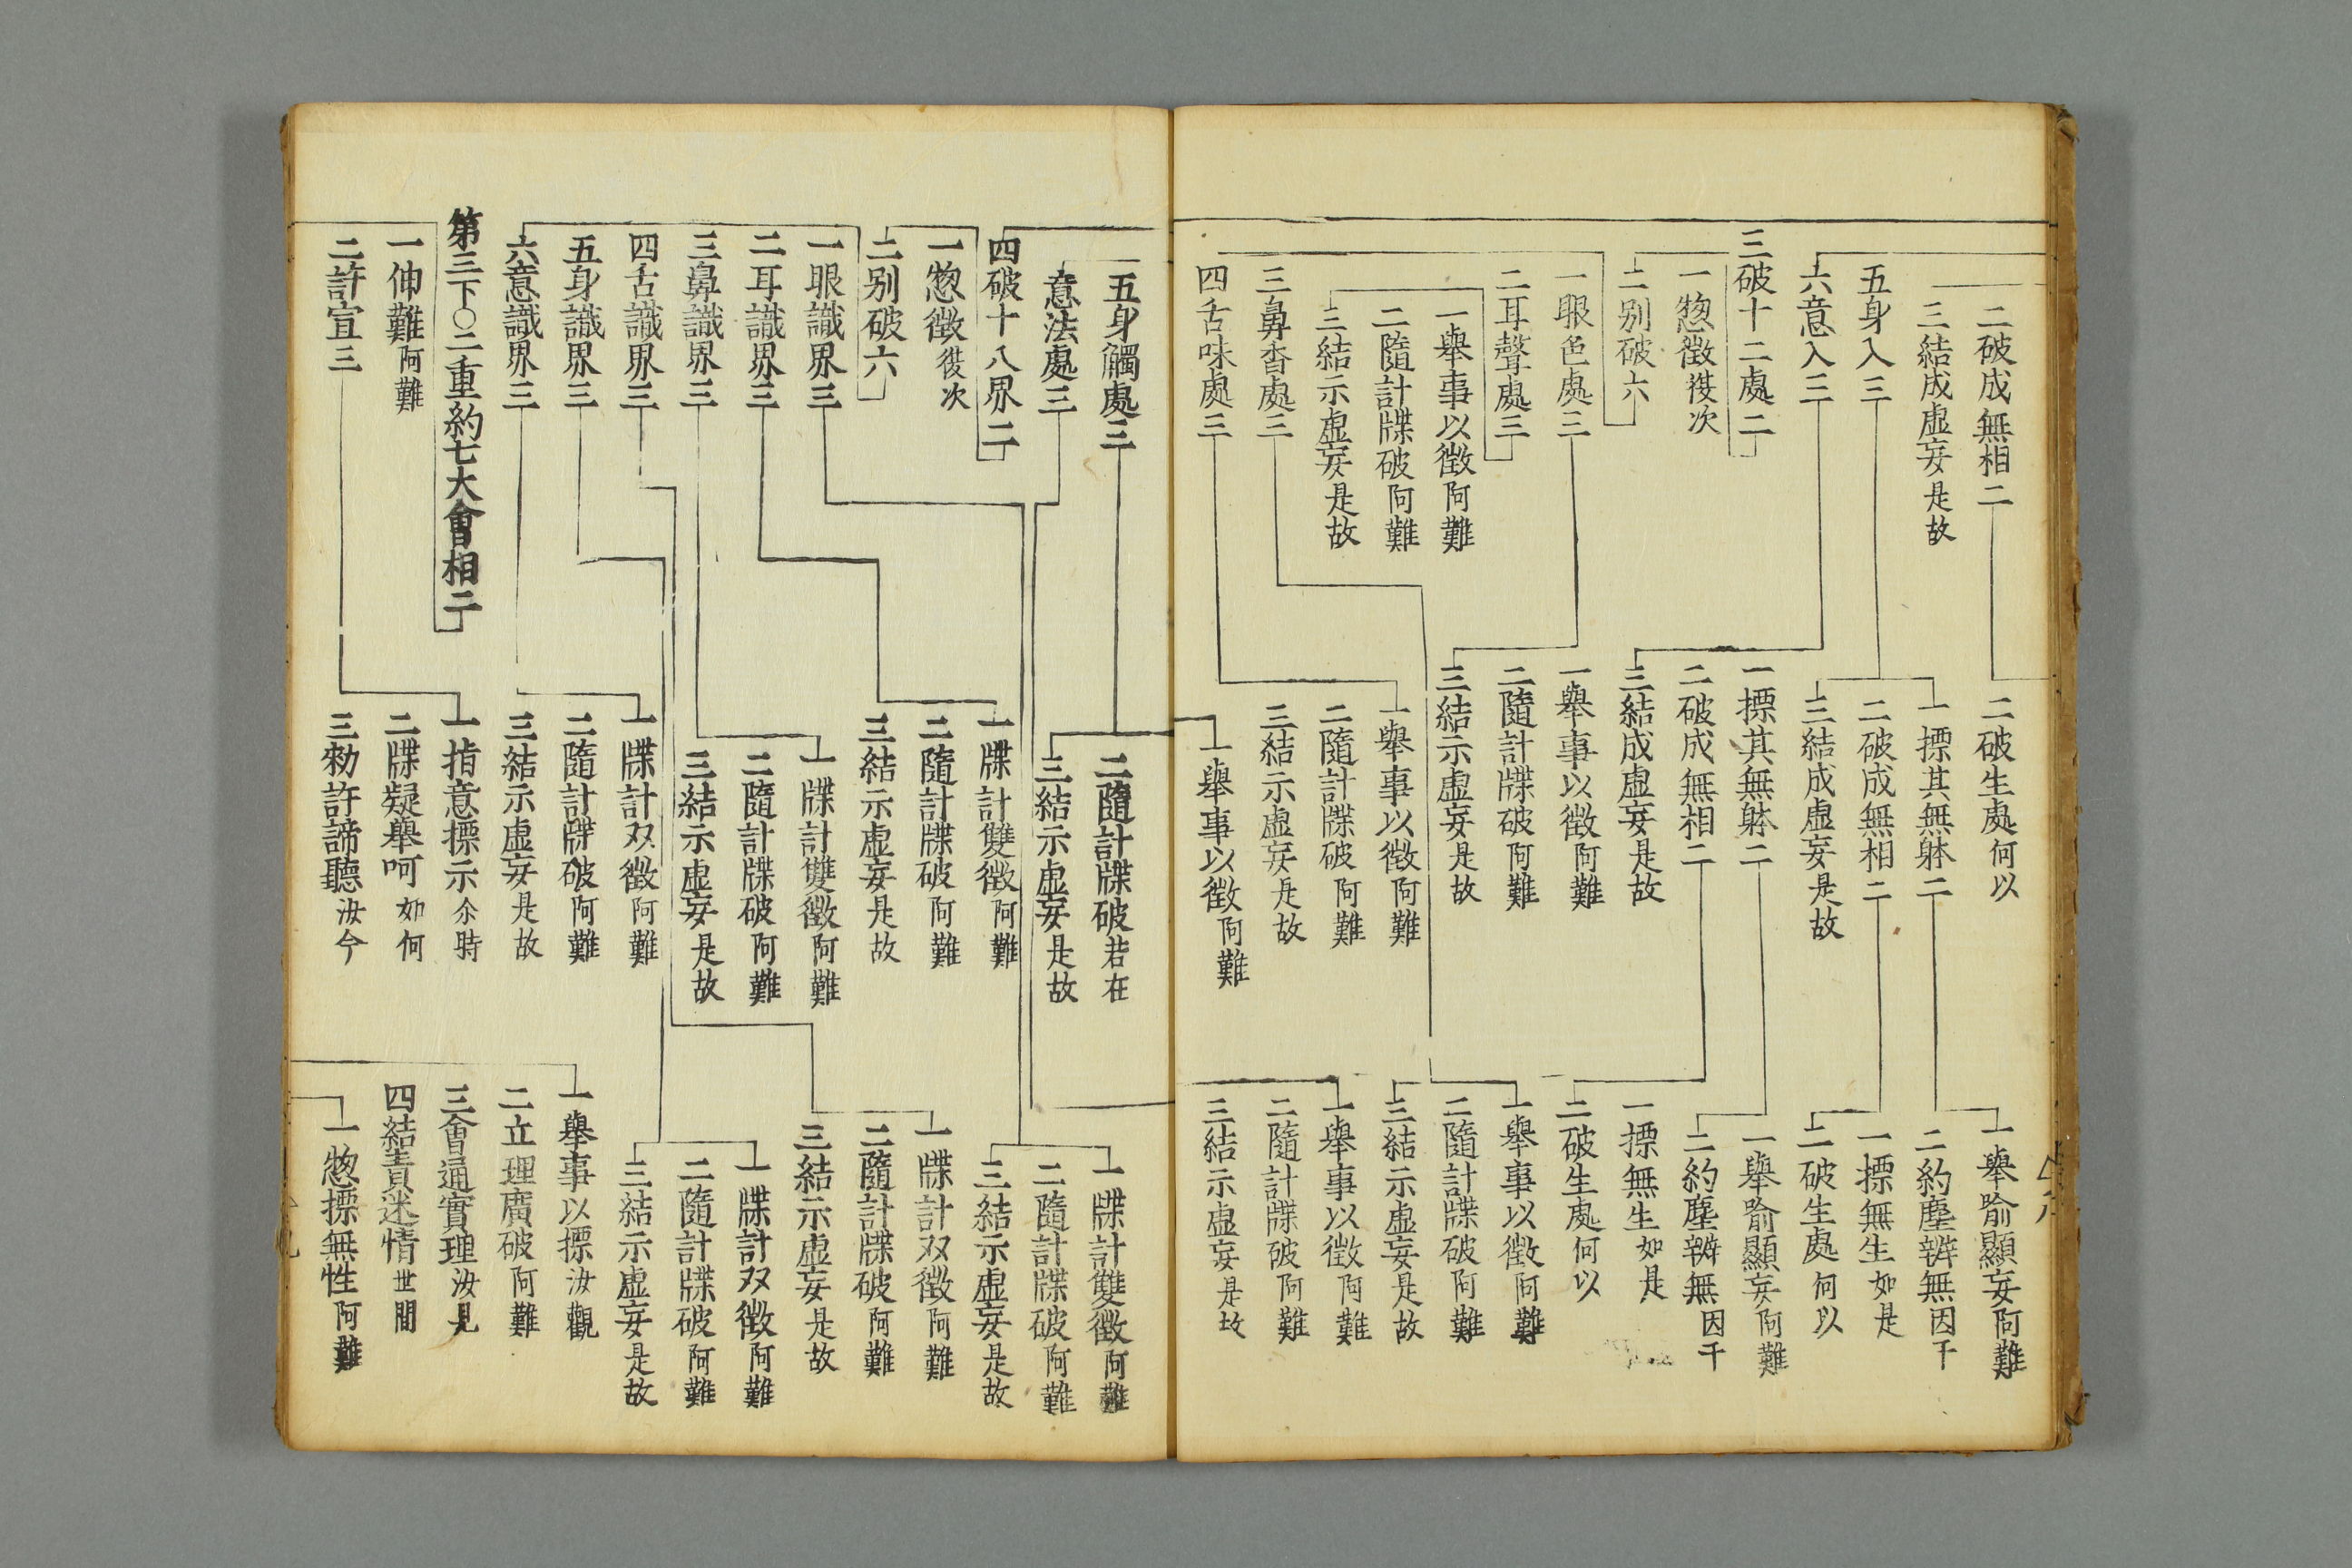 二破成無相二
三結成虛妄是故
五身入三
六意入三
三破十二處二
一惣徵復次
二別破六
一眼色處三
二耳聲處三
一舉事以徵阿難
二隨計牒破阿難
三結示虛妄是故
三鼻香處三
四舌味處三
二破生處何以
一摽其無躰二
二破成無相二
三結成虛妄是故
一摽其無躰二
二破成無相二
三結成虛妄是故
一舉事以徵阿難
二隨計牒破阿難
三結示虛妄是故
一舉事以徵阿難
二隨計牒破阿難
三結示虛妄是故
一舉事以徵阿難
一舉喻顯妄阿難
二約塵辨無因千
一摽無生如是
二破生處何以
一舉喻顯妄阿難
二約塵辨無因千
一摽無生如是
二破生處何以
一舉事以徵阿難
二隨計牒破阿難
三結示虛妄是故
一舉事以徵阿難
二隨計牒破阿難
三結示虛妄是故
五身觸處三
意法處三
四破十八界二
一惣徵復次
二別破六
一眼識界三
二耳識界三
三鼻識界三
四舌識界三
五身識界三
六意識界三
第三下〇二重約七大會相二
一伸難阿難
二許宣三
二隨計牒破若在
三結示虛妄是故
一牒計雙徵阿難
二隨計牒破阿難
三結示虛妄是故
一牒計雙徵阿難
二隨計牒破阿難
三結示虛妄是故
一牒計双徵阿難
二隨計牒破阿難
三結示虛妄是故
一指意摽示尒時
二牒疑舉呵如何
三勑許諦聽汝今
一牒計雙徵阿難
二隨計牒破阿難
三結示虛妄是故
一牒計双徵阿難
二隨計牒破阿難
三結示虛妄是故
一牒計双徵阿難
二隨計牒破阿難
三結示虛妄是故
一舉事以摽汝觀
二立理廣破阿難
三會通實理汝見
四結責迷情世間
一惣摽無性阿難